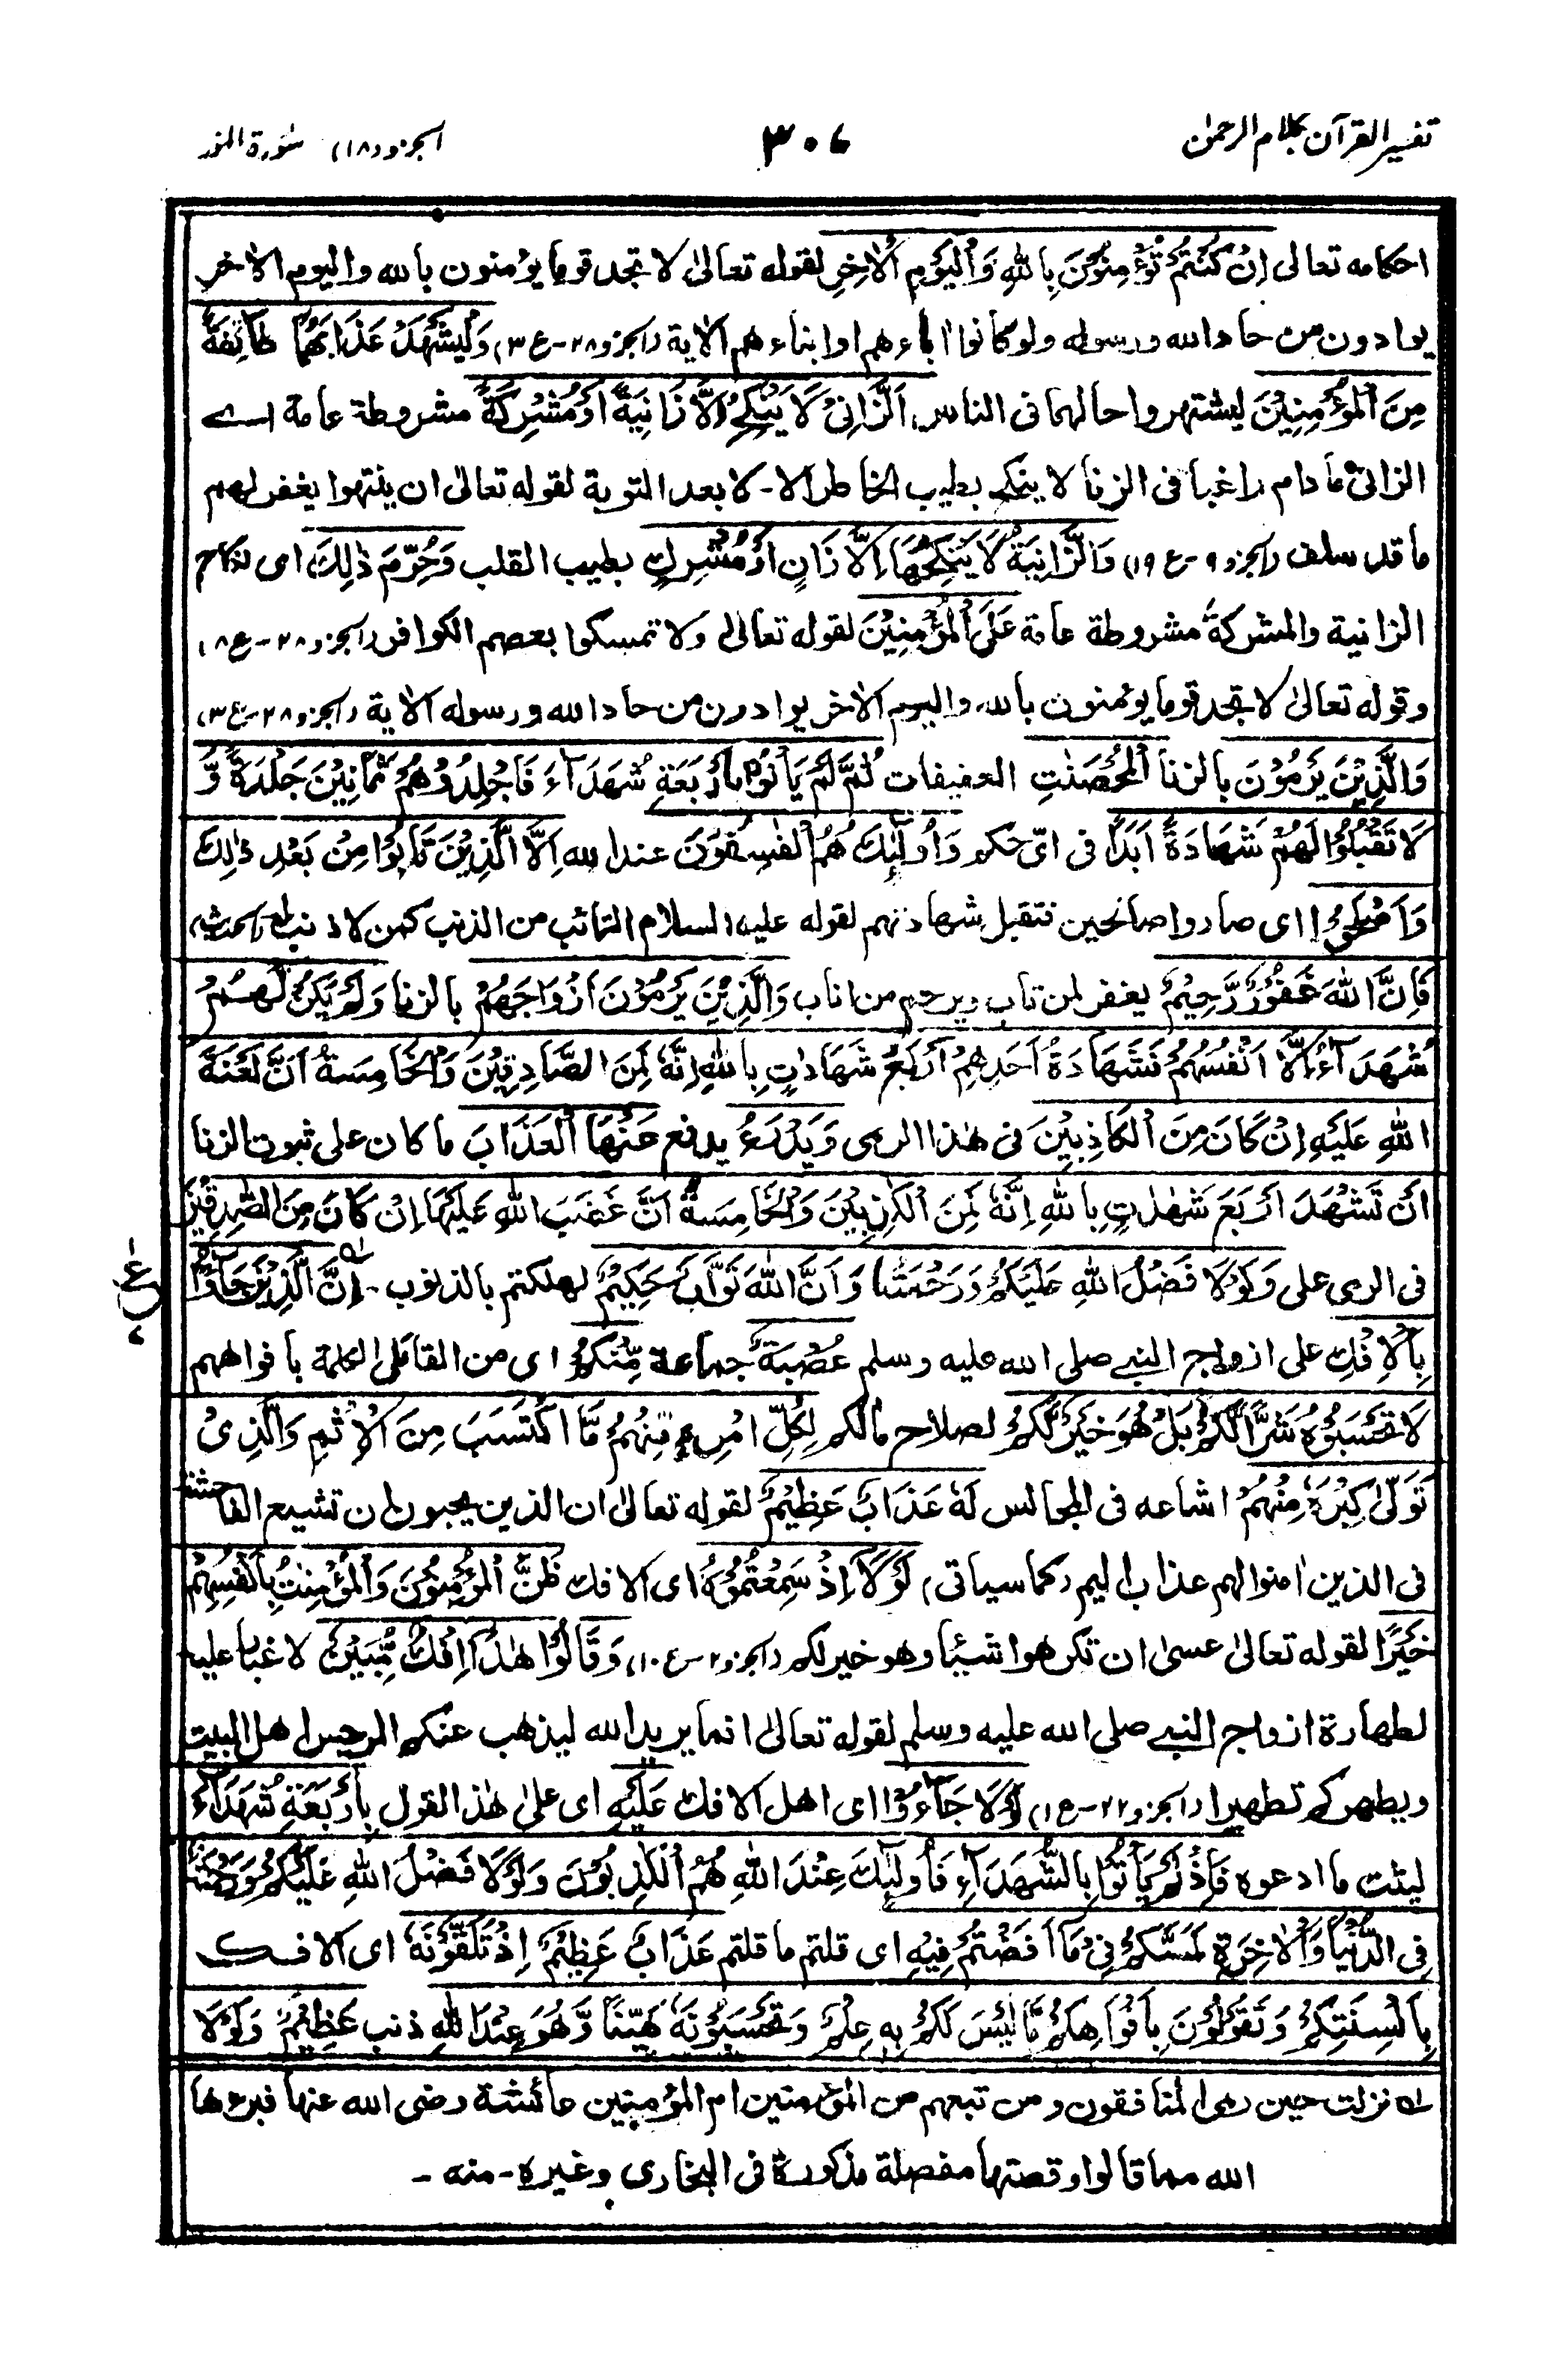 تفسير القرآن بكلام الرحمٰن
٣٠٦
الجزو (١٨) سُورة النور
احكامه تعالى اِنْ كُنْتُمْ تُؤْمِنُوْنَ بِاللّٰهِ وَالْيَوْمِ الْاٰخِرِ لقوله تعالىٰ لا تجد قوما يؤمنون بالله واليوم الاٰخر
يوادون من حاد الله ورسوله ولو كانوا اٰباءهم او ابناءهم الاٰية (الجزو ٢٨-ع ٣) وَلْيَشْهَدْ عَذَابَهُمَا طَآئِفَةٌ
مِنَ الْمُؤْمِنِيْنَ ليشتهروا حالهما فى الناس اَلزَّانِىْ لَا يَنْكِحُ اِلَّا زَانِيَةً اَوْ مُشْرِكَةً مشروطة عامة اے
الزانى ما دام راغبا فى الزنا لا ينكح بطيب الخاطر الا - لا بعد التوبة لقوله تعالىٰ ان ينتهوا يغفر لهم
ما قد سلف (الجزو ٩-ع ١٩) وَالزَّانِيَةُ لَا يَنْكِحُهَا اِلَّا زَانٍ اَوْ مُشْرِكٌ بطيب القلب وَحُرِّمَ ذٰلِكَ اى نكاح
الزانية والمشركة مشروطة عامة عَلَى الْمُؤْمِنِيْنَ لقوله تعالىٰ ولا تمسكوا بعصم الكوافر (الجزو ٢٨-ع ٨)
وقوله تعالىٰ لا تجد قوما يؤمنون بالله واليوم الاٰخر يوادون من حاد الله ورسوله الاٰية (الجزو ٢٨-ع ٣)
وَالَّذِيْنَ يَرْمُوْنَ بالزنا اَلْمُحْصَنٰتِ العفيفات ثُمَّ لَمْ يَأْتُوْا بِاَرْبَعَةِ شُهَدَآءَ فَاجْلِدُوْهُمْ ثَمَانِيْنَ جَلْدَةً وَّ
لَا تَقْبَلُوْا لَهُمْ شَهَادَةً اَبَدًا فى اىّ حكم وَاُولٰٓئِكَ هُمُ الْفٰسِقُوْنَ عند الله اِلَّا الَّذِيْنَ تَابُوْا مِنْ بَعْدِ ذٰلِكَ
وَاَصْلَحُوْا اى صاروا صالحين فتقبل شهادتهم لقوله عليه السلام التائب من الذنب كمن لا ذنب له (الحديث)
فَاِنَّ اللّٰهَ غَفُوْرٌ رَّحِيْمٌ يغفر لمن تاب ويرحم من اناب وَالَّذِيْنَ يَرْمُوْنَ اَزْوَاجَهُمْ بالزنا وَلَمْ يَكُنْ لَّهُمْ
شُهَدَآءُ اِلَّا اَنْفُسُهُمْ فَشَهَادَةُ اَحَدِهِمْ اَرْبَعُ شَهَادٰتٍ بِاللّٰهِ اِنَّهٗ لَمِنَ الصَّادِقِيْنَ وَالْخَامِسَةُ اَنَّ لَعْنَةَ
اللّٰهِ عَلَيْهِ اِنْ كَانَ مِنَ الْكَاذِبِيْنَ فى هٰذا الرمى وَيَدْرَءُ يدفع عَنْهَا الْعَذَابَ ما كان على ثبوت الزنا
اَنْ تَشْهَدَ اَرْبَعَ شَهٰدٰتٍ بِاللّٰهِ اِنَّهٗ لَمِنَ الْكٰذِبِيْنَ وَالْخَامِسَةُ اَنَّ غَضَبَ اللّٰهِ عَلَيْهَا اِنْ كَانَ مِنَ الصّٰدِقِيْنَ
فى الرمى على وَلَوْلَا فَضْلُ اللّٰهِ عَلَيْكُمْ وَرَحْمَتُهٗ وَاَنَّ اللّٰهَ تَوَّابٌ حَكِيْمٌ لهلكتم بالذنوب - اِنَّ الَّذِيْنَ جَآءُوْا
بِالْاِفْكِ على ازواج النبے صلى الله عليه وسلم عُصْبَةٌ جماعة مِّنْكُمْ اى من القائلى الكلمة بافواههم
لَا تَحْسَبُوْهُ شَرًّا لَّكُمْ بَلْ هُوَ خَيْرٌ لَّكُمْ لصلاح مالكم لِكُلِّ امْرِءٍ مِّنْهُمْ مَّا اكْتَسَبَ مِنَ الْاِثْمِ وَالَّذِىْ
تَوَلّٰى كِبْرَهٗ مِنْهُمْ اشاعه فى المجالس لَهٗ عَذَابٌ عَظِيْمٌ لقوله تعالىٰ ان الذين يحبون ان تشيع الفاحشة
فى الذين اٰمنوا لهم عذاب اليم (كما سياتى) لَوْلَا اِذْ سَمِعْتُمُوْهُ اى الافك ظَنَّ الْمُؤْمِنُوْنَ وَالْمُؤْمِنٰتُ بِاَنْفُسِهِمْ
خَيْرًا لقوله تعالىٰ عسىٰ ان تكرهوا شيئا وهو خير لكم (الجزو ٢-ع ١٠) وَقَالُوْا هٰذَا اِفْكٌ مُّبِيْنٌ لا غبار عليه
لطهارة ازواج النبے صلى الله عليه وسلم لقوله تعالىٰ انما يريد الله ليذهب عنكم الرجس اهل البيت
ويطهركم تطهيرا (الجزو ٢٢-ع ١) لَوْلَا جَآءُوْا اى اهل الافك عَلَيْهِ اى علىٰ هٰذا القول بِاَرْبَعَةِ شُهَدَآءَ
ليثبت ما ادعوه فَاِذْ لَمْ يَأْتُوْا بِالشُّهَدَآءِ فَاُولٰٓئِكَ عِنْدَ اللّٰهِ هُمُ الْكٰذِبُوْنَ وَلَوْلَا فَضْلُ اللّٰهِ عَلَيْكُمْ وَرَحْمَتُهٗ
فِى الدُّنْيَا وَالْاٰخِرَةِ لَمَسَّكُمْ فِىْ مَا اَفَضْتُمْ فِيْهِ اى قلتم ما قلتم عَذَابٌ عَظِيْمٌ اِذْ تَلَقَّوْنَهٗ اى الافك
بِاَلْسِنَتِكُمْ وَتَقُوْلُوْنَ بِاَفْوَاهِكُمْ مَّا لَيْسَ لَكُمْ بِهٖ عِلْمٌ وَتَحْسَبُوْنَهٗ هَيِّنًا وَّهُوَ عِنْدَ اللّٰهِ ذنب عَظِيْمٌ وَلَوْلَا
لـه نزلت حين رمى المنافقون ومن تبعهم من المؤمنين ام المؤمنين عائشة رضى الله عنها فبرءها
الله مما قالوا وقصتها مفصلة مذكورة فى البخارى وغيره - منه -